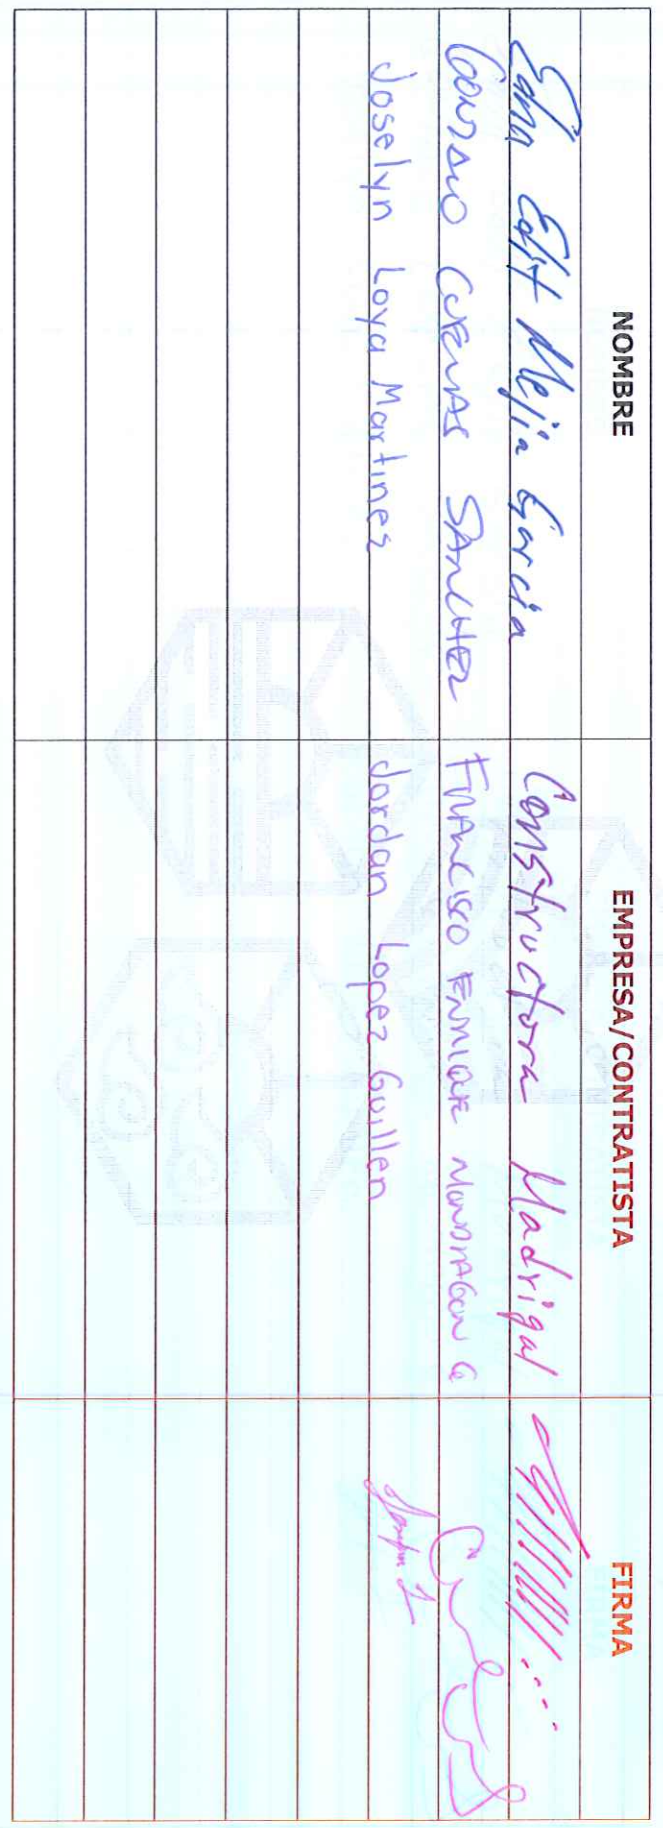 NOMBRE EMPRESA/CONTRATISTA FIRMA
Edna Edit Mejía García Constructora Madrigal
Gonzalo Cuevas SAnCHEZ FRANCISCO ENRIQUE MONDRAGON G
Joselyn Loya Martinez Jordan Lopez Guillen